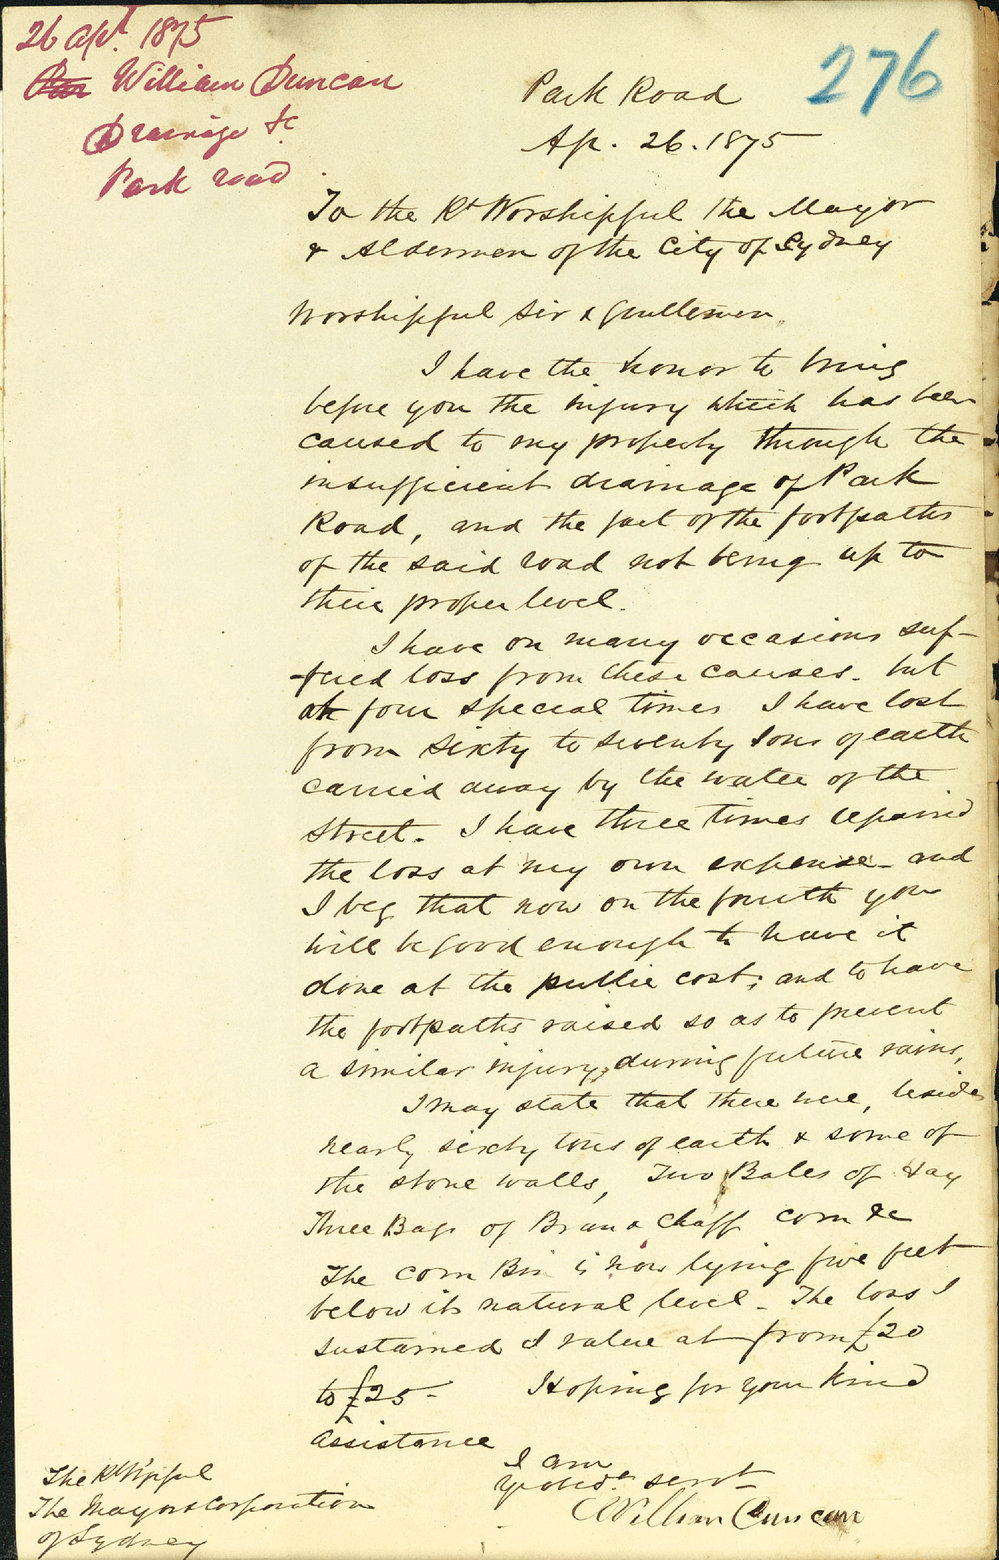 26 Apl. 1875
William Duncan
Drainage &c
Park road
276
Park Road
Ap. 26. 1875
To the Rt Worshipful the Mayor
& Aldermen of the City of Sydney
Worshipful Sir & Gentlemen,
I have the honor to bring
before you the injury which has been
caused to my property through the
insufficient drainage of Park
Road, and the fact of the footpaths
of the said road not being up to
their proper level.
I have on many occasions suf-
-fered loss from these causes. but
at four special times I have lost
from sixty to seventy tons of earth
carried away by the water of the
street. I have three times repaired
the loss at my own expense and
I beg that now on the fourth you
will be good enough to have it
done at the public cost; and to have
the footpaths raised so as to prevent
a similar injury, during future rains,
I may state that there were, beside
nearly sixty tons of earth & some of
the stone walls, Two Bales of Hay
Three Bags of Bran & Chaff corn &c
The corn Bin is now lying five feet
below its natural level. The loss I
sustained I value at from £20
to £25 - Hoping for your kind
assistance
I am
Yr obedt. servt
William Duncan
The Rt Wpful
The Mayor & Corporation
of Sydney